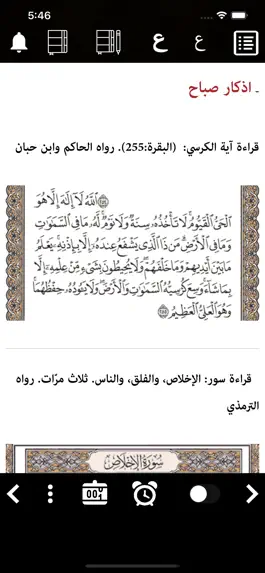 5:46
ع ع
ـ اذكار صباح
قراءة آية الكرسي: (البقرة:255). رواه الحاكم وابن حبان
ٱللَّهُ لَآ إِلَٰهَ إِلَّا هُوَ
ٱلْحَىُّ ٱلْقَيُّومُ لَا تَأْخُذُهُۥ سِنَةٌ وَلَا نَوْمٌ لَّهُۥ مَا فِى ٱلسَّمَٰوَٰتِ
وَمَا فِى ٱلْأَرْضِ مَن ذَا ٱلَّذِى يَشْفَعُ عِندَهُۥٓ إِلَّا بِإِذْنِهِۦ يَعْلَمُ
مَا بَيْنَ أَيْدِيهِمْ وَمَا خَلْفَهُمْ وَلَا يُحِيطُونَ بِشَىْءٍ مِّنْ عِلْمِهِۦٓ إِلَّا
بِمَا شَآءَ وَسِعَ كُرْسِيُّهُ ٱلسَّمَٰوَٰتِ وَٱلْأَرْضَ وَلَا يَـُٔودُهُۥ حِفْظُهُمَا
وَهُوَ ٱلْعَلِىُّ ٱلْعَظِيمُ ٢٥٥
قراءة سور: الإخلاص، والفلق، والناس. ثلاث مرّات. رواه
الترمذي
سُورَةُ الإِخْلَاصِ
001